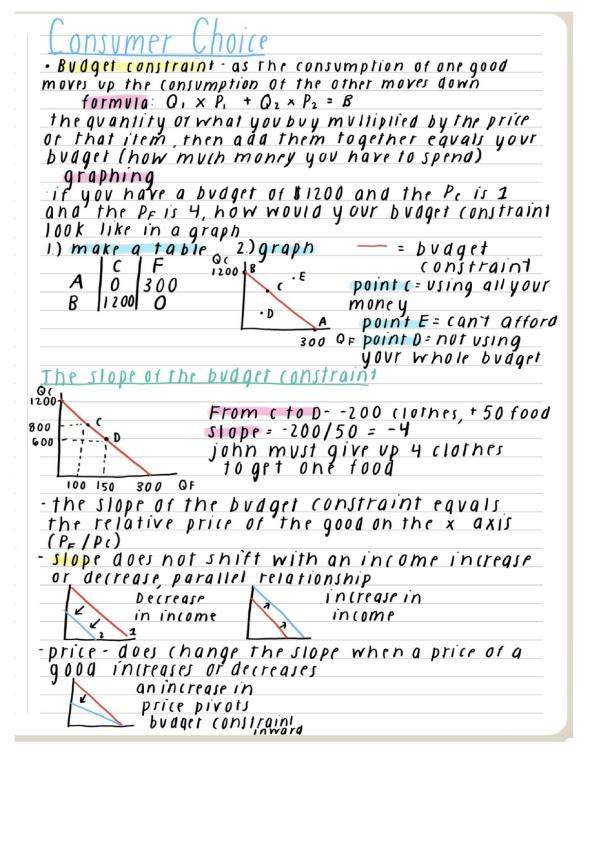 Consumer Choice
• Budget constraint - as the consumption of one good
moves up the consumption of the other moves down
formula: Q1 x P1 + Q2 x P2 = B
the quantity of what you buy multiplied by the price
of that item, then add them together equals your
budget (how much money you have to spend)
graphing
if you have a budget of $1200 and the Pc is 1
and the PF is 4, how would your budget constraint
look like in a graph
1.) make a table 2.) graph — = budget
constraint
C F
A 0 300
B 1200 0
QC
1200 B
C • E
• D
A
300 QF
point C = using all your
money
point E = can't afford
point D = not using
your whole budget
The slope of the budget constraint
QC
1200
800 C
600 D
100 150 300 QF
From C to D - -200 clothes, + 50 food
slope = -200/50 = -4
john must give up 4 clothes
to get one food
- the slope of the budget constraint equals
the relative price of the good on the x axis
(PF/PC)
- slope does not shift with an income increase
or decrease, parallel relationship
Decrease
in income
2 1
increase in
income
- price - does change the slope when a price of a
good increases or decreases
an increase in
price pivots
budget constraint
inward